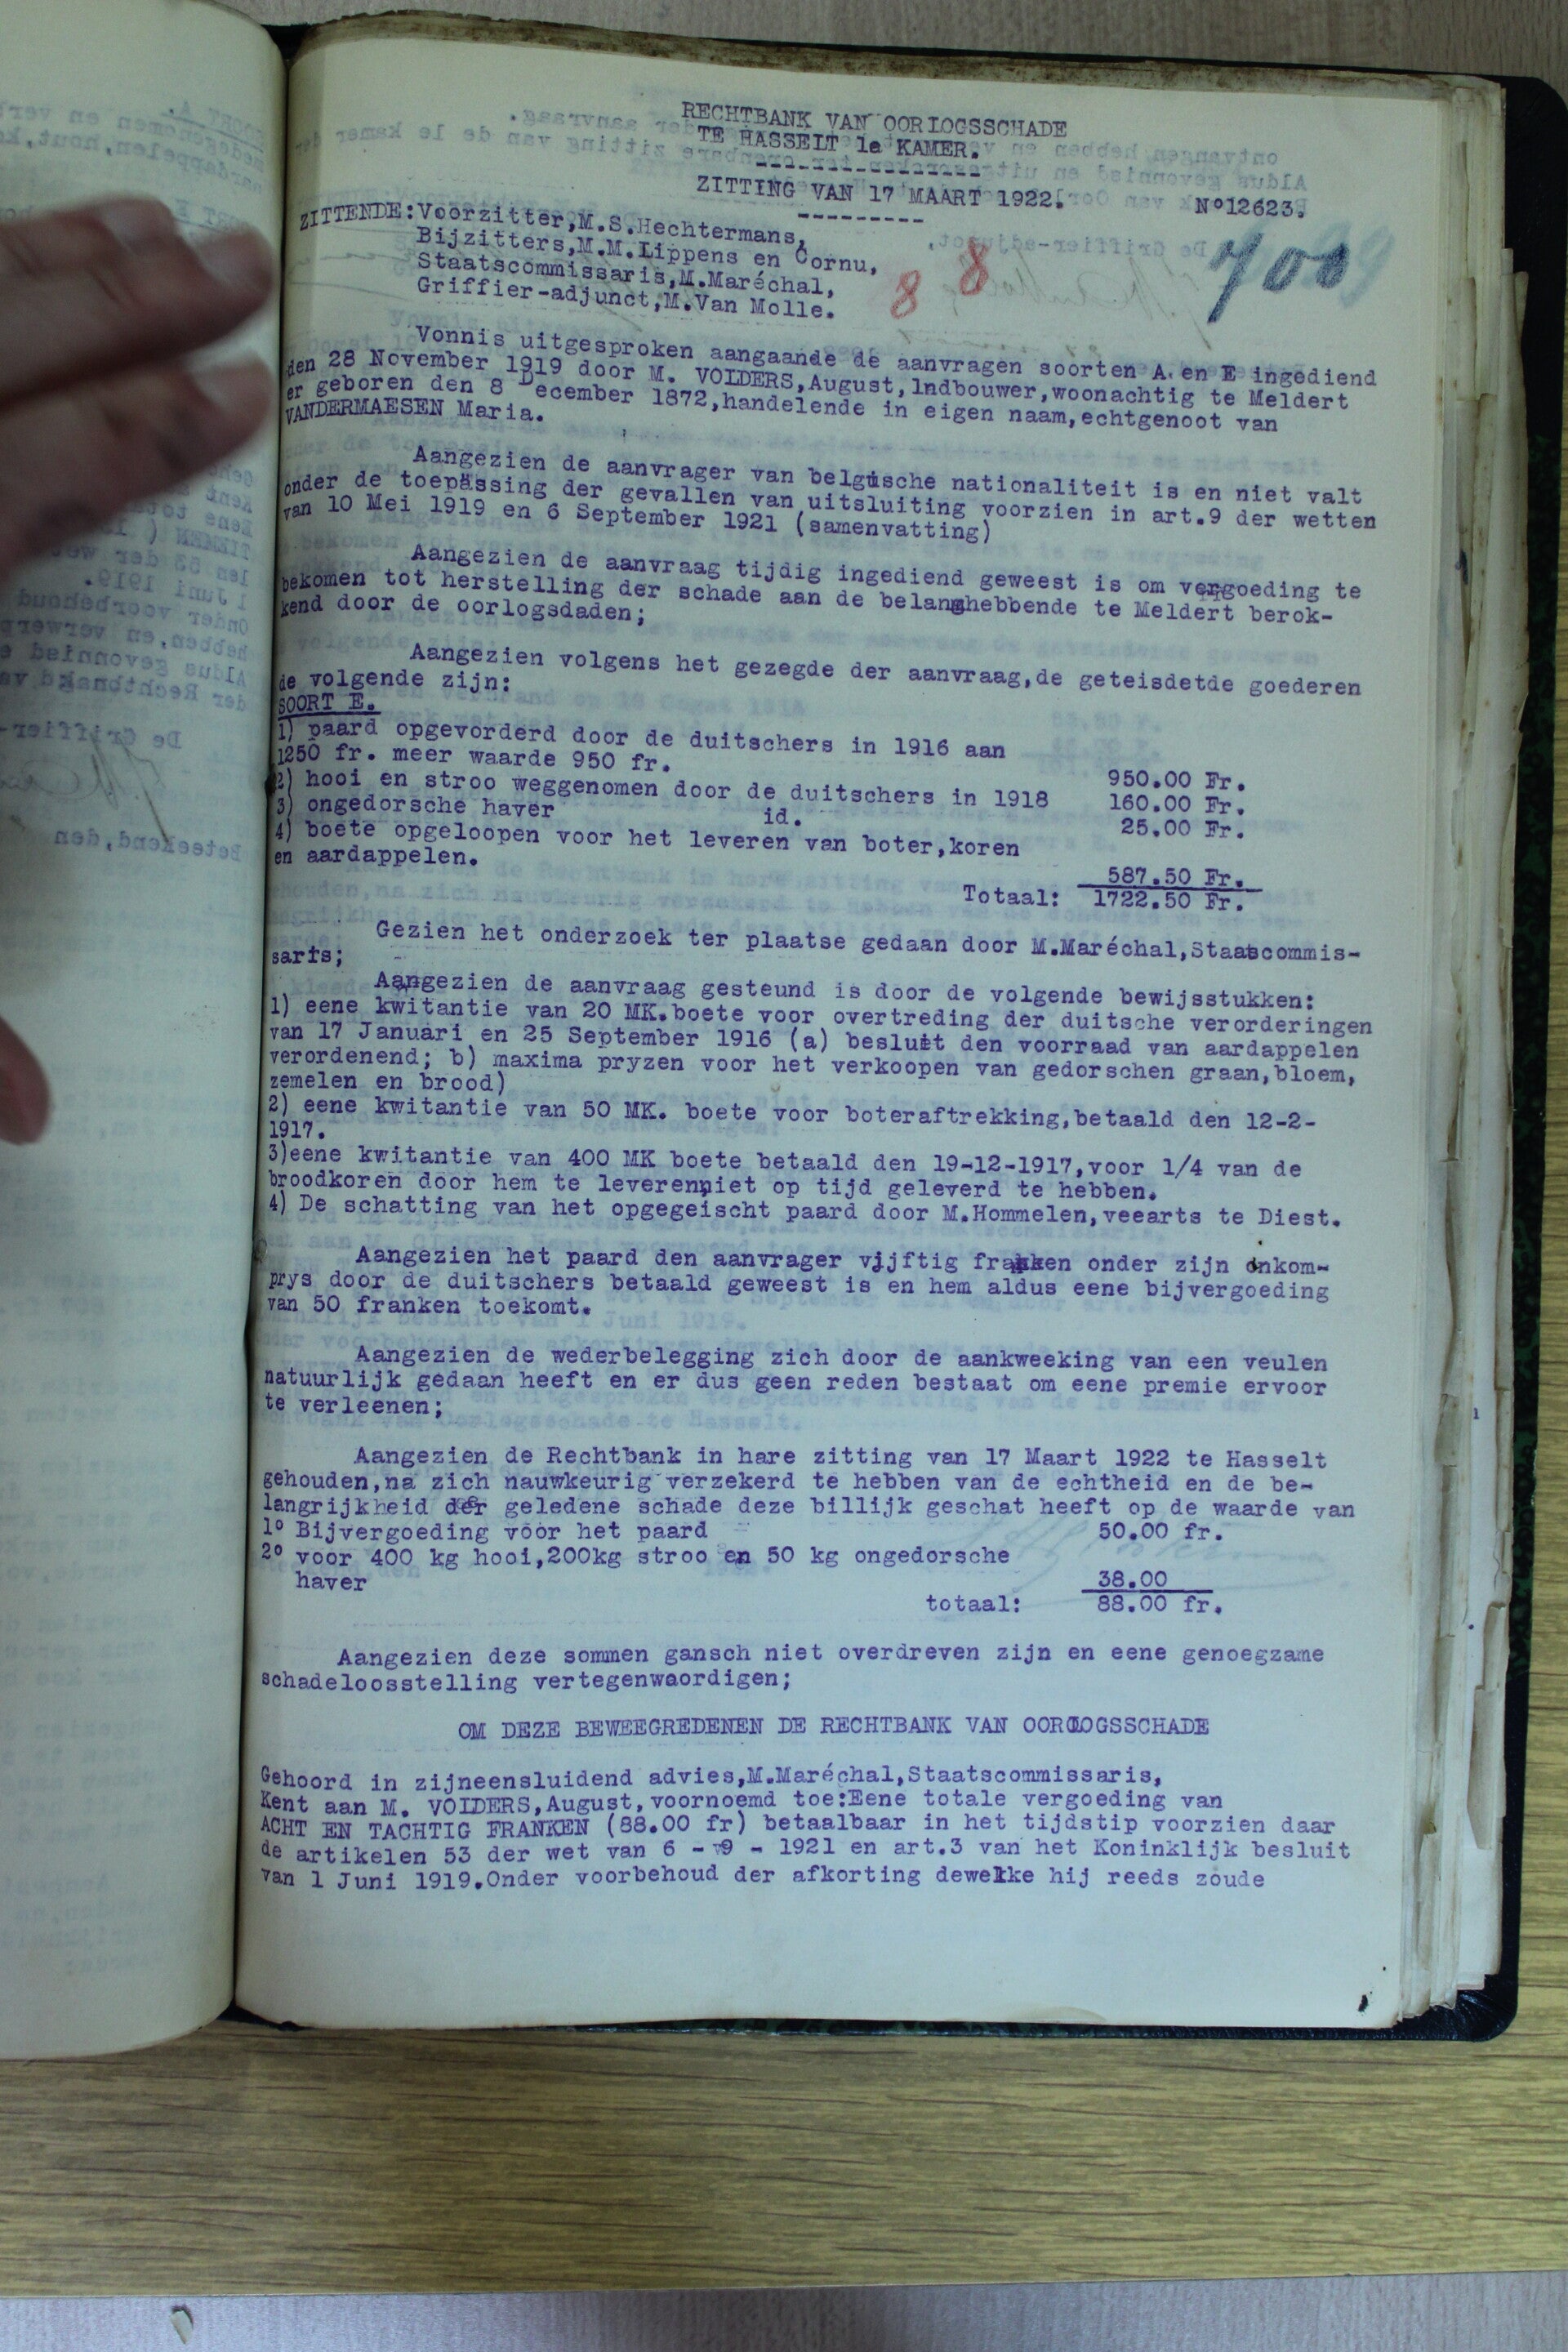 RECHTBANK VAN OORLOGSSCHADE
TE HASSELT 1e KAMER.
ZITTING VAN 17 MAART 1922.
N°12623.
700
8 8
ZITTENDE:Voorzitter,M.S.Hechtermans,
Bijzitters,M.M.Lippens en Cornu,
Staatscommissaris,M.Maréchal,
Griffier-adjunct,M.Van Molle.
Vonnis uitgesproken aangaande de aanvragen soorten A.en E ingediend
den 28 November 1919 door M. VOLDERS,August,lndbouwer,woonachtig te Meldert
er geboren den 8 December 1872,handelende in eigen naam,echtgenoot van
VANDERMAESEN Maria.
Aangezien de aanvrager van belgische nationaliteit is en niet valt
onder de toepassing der gevallen van uitsluiting voorzien in art.9 der wetten
van 10 Mei 1919 en 6 September 1921 (samenvatting)
Aangezien de aanvraag tijdig ingediend geweest is om vergoeding te
bekomen tot herstelling der schade aan de belanghebbende te Meldert berok-
kend door de oorlogsdaden;
Aangezien volgens het gezegde der aanvraag,de geteisdetde goederen
de volgende zijn:
SOORT E.
1) paard opgevorderd door de duitschers in 1916 aan
1250 fr. meer waarde 950 fr. 950.00 Fr.
2) hooi en stroo weggenomen door de duitschers in 1918 160.00 Fr.
3) ongedorsche haver id. 25.00 Fr.
4) boete opgeloopen voor het leveren van boter,koren
en aardappelen. 587.50 Fr.
Totaal: 1722.50 Fr.
Gezien het onderzoek ter plaatse gedaan door M.Maréchal,Staatscommis-
saris;
Aangezien de aanvraag gesteund is door de volgende bewijsstukken:
1) eene kwitantie van 20 MK.boete voor overtreding der duitsche verorderingen
van 17 Januari en 25 September 1916 (a) besluit den voorraad van aardappelen
verordenend; b) maxima pryzen voor het verkoopen van gedorschen graan,bloem,
zemelen en brood)
2) eene kwitantie van 50 MK. boete voor boteraftrekking,betaald den 12-2-
1917.
3)eene kwitantie van 400 MK boete betaald den 19-12-1917,voor 1/4 van de
broodkoren door hem te leveren,niet op tijd geleverd te hebben.
4) De schatting van het opgegeischt paard door M.Hommelen,veearts te Diest.
Aangezien het paard den aanvrager vijftig franken onder zijn inkom-
prys door de duitschers betaald geweest is en hem aldus eene bijvergoeding
van 50 franken toekomt.
Aangezien de wederbelegging zich door de aankweeking van een veulen
natuurlijk gedaan heeft en er dus geen reden bestaat om eene premie ervoor
te verleenen;
Aangezien de Rechtbank in hare zitting van 17 Maart 1922 te Hasselt
gehouden,na zich nauwkeurig verzekerd te hebben van de echtheid en de be-
langrijkheid der geledene schade deze billijk geschat heeft op de waarde van
1° Bijvergoeding voor het paard 50.00 fr.
2° voor 400 kg hooi,200kg stroo en 50 kg ongedorsche
haver 38.00
totaal: 88.00 fr.
Aangezien deze sommen gansch niet overdreven zijn en eene genoegzame
schadeloosstelling vertegenwaordigen;
OM DEZE BEWEEGREDENEN DE RECHTBANK VAN OORLOGSSCHADE
Gehoord in zijneensluidend advies,M.Maréchal,Staatscommissaris,
Kent aan M. VOLDERS,August,voornoemd toe:Eene totale vergoeding van
ACHT EN TACHTIG FRANKEN (88.00 fr) betaalbaar in het tijdstip voorzien daar
de artikelen 53 der wet van 6 - 9 - 1921 en art.3 van het Koninklijk besluit
van 1 Juni 1919.Onder voorbehoud der afkorting dewelke hij reeds zoude